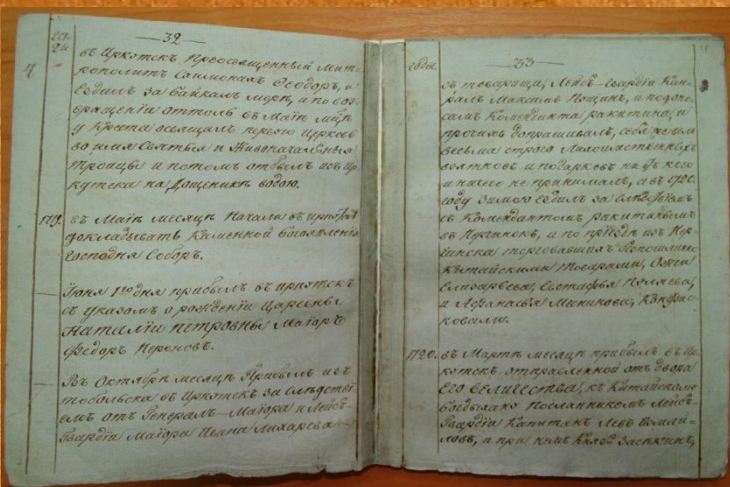 — 32 —
въ Иркутскъ Преосвященный Мит-
рополитъ Схимонахъ Ѳеодоръ, и
ездилъ за байкалъ море, и по воз-
вращеніи оттоль въ Маіи м҃цѣ
у Креста освящалъ первую Церковь
во имя Святыя и Живоначальныя
Троицы и потомъ отбылъ изъ Ир-
кутска на Дощеникѣ водою.
въ Маіи месяцѣ Начали въ Иркутске
докладывать Каменной богоявленія
Господня Соборъ.
Іюня 1го дня прибылъ въ Иркутскъ
съ указомъ о рожденіи Царевны
Наталіи Петровны Маіоръ
Ѳедоръ
Въ Октябрѣ месяцѣ Прибылъ изъ
тобольска въ Иркутскъ за Следстві-
емъ отъ Генералъ—Маіора и Лейбъ-
Гвардіи Маіора Ивана Лихарева
— 33 —
годы.
съ товарищи, Лейбъ—Гвардіи Кап-
ралъ Максимъ Пущинъ, и по
самъ Коменданта ракитина, и
прочихъ допрашивалъ, себя велъ
весьма строго Лихоимственныхъ
взятковъ и подарковъ ни съ кого
и ничего не принималъ, а въ 1720.
году зимою ездилъ за Следствіемъ
съ Комендантомъ ракитинымъ
въ Нерчинскъ, и по приезде изъ Нер-
чинска торговавшихъ
Китайскими товарами,
Елизарьева, Евстафья Пиляева,
и Афанасья Миникова, Конфис-
ковалъ.
1720. въ Мартѣ месяцѣ прибылъ въ Ир-
кутскъ отправленной отъ двора
Его величества, къ Китайскому
богдыхану Посланникомъ Лейбъ-
Гвардіи Капитанъ Левъ Измаи-
ловъ, и при немъ Князь Засекинъ,